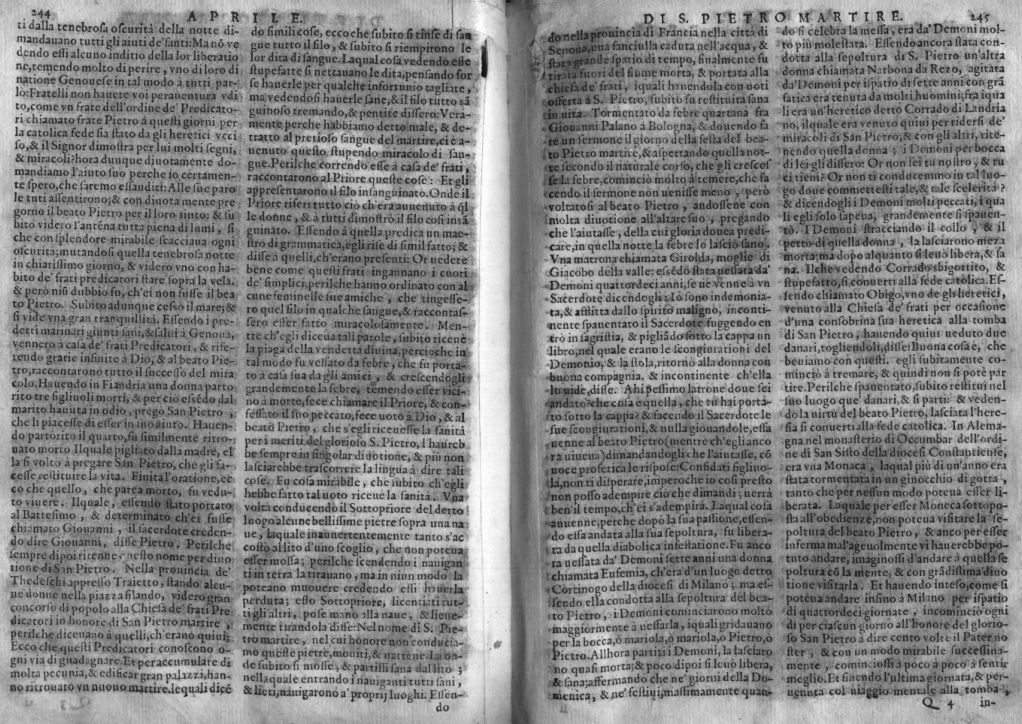 244 APRILE.
ti dalla tenebrosa oscurità della notte di-
mandauano tutti gli aiuti de'santi: Ma nõ ve
dendo essi alcuno inditio della lor liberatio
ne, temendo molto di perire, vno di loro di
natione Genouese in tal modo à tutti par-
lò: Fratelli non hauete voi perauentura vdi
to, come vn frate dell'ordine de' Predicato-
ri chiamato frate Pietro à questi giorni per
la catolica fede sia stato da gli heretici vcci
so, & il Signor dimostra per lui molti segni,
& miracoli? hora dunque diuotamente do-
mandiamo l'aiuto suo perche io certamen-
te spero, che saremo essauditi: Alle sue paro
le tutti assentirono; & con diuota mente pre
gorno il beato Pietro per il loro aiuto; & su
bito videro l'antẽna tutta piena di lumi, si
che con splendore mirabile scacciaua ogni
oscurità; mutandosi quella tenebrosa notte
in chiarissimo giorno, & videro vno con ha-
bito de' frati predicatori stare sopra la vela.
& però niũ dubbio fu, ch'ei non fusse il bea
to Pietro. Subito adunque cessò il mare; &
si vide vna gran tranquillità. Essendo i pre-
detti marinari giunti sani, & salui à Genoua,
vennero à casa de' frati Predicatori, & rife-
rendo gratie infinite à Dio, & al beato Pie-
tro, raccontarono tutto il successo del mira
colo. Hauendo in Fiandria una donna parto
rito tre figliuoli morti, & per ciò essẽdo dal
marito hauuta in odio, pregò San Pietro,
che li piacesse di esser in suo aiuto. Hauen-
do partorito il quarto, fu similmente ritro-
uato morto Ilquale pigliato dalla madre, el
la si voltò à pregare San Pietro, che gli fa-
cesse restituire la vita. Finita l'oratione, ec
co che quello, che parea morto, fu vedu-
to viuere. Ilquale, essendo stato portato
al Battesimo, & determinato ch'ei fusse
chiamato Giouanni, il sacerdote creden-
do dire Giouanni, disse Pietro. Perilche
sempre dipoi ritenne questo nome per diuo
tione di San Pietro. Nella prouincia de'
Thedeschi appresso Traietto, stando alcu-
ne donne nella piazza filando, videro gran
concorso di popolo alla Chiesa de' frati Pre
dicatori in honore di San Pietro martire,
perilche diceuano à quelli, ch'erano quiui;
Ecco che questi Predicatori conoscono o-
gni via di guadagnare. Et per accumulare di
molta pecunia, & edificar gran palazzi, han-
no ritrouato vn nuouo martire. lequali dicẽ
do simili cose, ecco che subito si tinse di san
gue tutto il filo, & subito si riempirono le
lor dita di sangue. Laqual cosa vedendo esse
stupefatte si nettauano le dita, pensando for
se hauerle per qualche infortunio tagliate,
ma vedendosi hauerle sane, & il filo tutto sã
guinoso tremando, & pentite dissero: Vera-
mente perche habbiamo detto male, & de-
tratto al pretioso sangue del martire, ci è a-
uenuto questo stupendo miracolo di san-
gue. Perilche correndo esse à casa de' frati,
raccontarono al Priore queste cose: Et gli
appresentarono il filo insanguinato. Onde il
Priore riferì tutto ciò ch'era auuenuto à gli
le donne, & à tutti dimostrò il filo così insã
guinato. Essendo à quella predica vn mae-
stro di grammatica, egli rise di simil fatto; &
disse à quelli, ch'erano presenti: Or vedere
bene come questi frati ingannano i cuori
de' simplici, perilche hanno ordinato con al
cune feminelle sue amiche, che tingesse-
ro quel filo in qualche sangue, & raccontas-
sero esser fatto miracolosamente. Men-
tre ch'egli diceua tali parole, subito riceuè
la piaga della vendetta diuina, percioche in
tal modo fu vessato da febre, che fu porta-
to à casa sua da gli amici, & crescendogli
grandemente la febre, temendo esser vici-
no à morte, fece chiamare il Priore, & con-
fessato il suo peccato, fece uoto à Dio, & al
beato Pietro, che s'egli riceuesse la sanità
per i meriti del glorioso S. Pietro, l'haureb
be sempre in singolar diuotione, & più non
lasciarebbe trascorrere la lingua à dire tali
cose. Fu cosa mirabile, che subito ch'egli
hebbe fatto tal uoto riceuè la sanità. Vna
volta conducendo il Sottopriore del detto
luogo alcune bellissime pietre sopra una na
ue, laquale inauuertentemente tanto s'ac
costò al lito d'uno scoglio, che non poteua
esser mossa; perilche scendendo i nauigan
ti in terra la tirauano, ma in niun modo la
poteano muouere credendo essi hauerla
perduta; esso Sottopriore, licentiati tut-
ti gli altri, pose mano alla naue, & lieue-
mente tirandola disse: Nel nome di S. Pie-
tro martire, nel cui honore non conducia-
mo queste pietre, mouiti, & va ttene. La on-
de subito si mosse, & partissi sana dal lito;
nella quale entrando i nauiganti tutti sani,
& lieti, nauigarono a' proprij luoghi. Essen-
do
DI S. PIETRO MARTIRE. 245
do nella prouincia di Francia nella città di
Senona, vna fanciulla caduta nell'acqua, &
stata grande spatio di tempo, finalmente fu
tirata fuori del fiume morta, & portata alla
chiesa de' frati, iquali hauendola con uoti
offerta à S. Pietro, subito fu restituita sana
in uita. Tormentato da febre quartana fra
Giouanni Palano à Bologna, & douendo fa
re un sermone il giorno della festa del bea-
to Pietro martire, & aspettando quella not-
te secondo il naturale corso, che gli crescef
se la febre, cominciò molto à temere, che fa
cendo il sermone non uenisse meno, però
voltatosi al beato Pietro, andossene con
molta diuotione all'altare suo, pregando
che l'aiutasse, della cui gloria douea predi-
care, in quella notte la febre lo lasciò sano.
Vna matrona chiamata Girolda, moglie di
Giacobo della valle: essẽdo stata uessata da'
Demoni quattordeci anni, se ne venne à vn
Sacerdote dicendogli: Io sono indemonia-
ta, & afflitta dallo spirito maligno, inconti-
mente spauentato il Sacerdote fuggendo en
trò in sagristia, & pigliãdo sotto la cappa un
libro, nel quale erano le scongiurationi del
Demonio, & la stola, ritornò alla donna con
buona compagnia, & incontinente ch'ella
lo uide, disse. Ahi pessimo latrone doue sei
andato? che cosa è quella, che tu hai porta-
to sotto la cappa? & facendo il Sacerdote le
sue scongiurationi, & nulla giouando le, essa
uenne al beato Pietro (mentre ch'egli anco
ra uiueua) dimandandogli che l'aiutasse, cõ
uoce profetica le rispose: Confidati figliuo-
la, non ti disperare, imperoche io così presto
non posso adempire ciò che dimandi; uerrà
ben'il tempo, ch'ei s'adempirà. Laqual cosa
auuenne, perche dopò la sua passione, essen-
do essa andata alla sua sepoltura, fu libera-
ra da quella diabolica infestatione. Fu anco
ra uessata da' Demoni sette anni una donna
chiamata Eufemia, ch'era d'un luogo detto
Cortinogo della diocesi di Milano; ma es-
sendo ella condotta alla sepoltura del bea-
to Pietro, i Demoni cominciarono molto
maggiormente à uessarla, iquali gridauano
per la bocca, ò mariola, ò mariola, ò Pietro, ò
Pietro. Allhora partiti i Demoni, la lasciaro
no quasi morta; & poco dipoi si leuò libera,
& sana; affermando che ne' giorni della Do-
menica, & ne' festiui, massimamente quan-
do si celebra la messa, era da' Demoni mol-
to più molestata. Essendo ancora stata con-
dotta alla sepoltura di S. Pietro un'altra
donna chiamata Narbona da Rezo, agitata
da' Demoni per ispatio di sette anni con grã
fatica era tenuta da molti huomini; fra iqua
li era un'heretico detto Corrado di Landria
no, ilquale era venuto quiui per ridersi de'
miracoli di San Pietro, & con gli altri, rite-
nendo quella donna; i Demoni per bocca
di lei gli dissero: Or non sei tu nostro, & tu
ci tieni? Or non ti conducemmo in tal luo-
go doue commettesti tale, & tale scelerità?
& dicendogli i Demoni molti peccati, i qua
li egli solo sapeua, grandemente si spauen-
tò. I Demoni stracciando il collo, & il
petto di quella donna, la lasciarono meza
morta; ma dopo alquanto si leuò libera, & sa
na. Ilche vedendo Corrado sbigottito, &
stupefatto, si conuertì alla fede catolica. Es-
sendo chiamato Obigo, vno de gli heretici,
venuto alla Chiesa de' frati per occasione
d'una consobrina sua heretica alla tomba
di San Pietro, hauendo quiui ueduto due
danari, togliendoli, disse: Buona cosa è, che
beuiamo con questi. egli subitamente co-
minciò à tremare, & quindi non si potè par
tire. Perilche spauentato, subito restituì nel
suo luogo que' danari, & si partì: & veden-
do la uirtù del beato Pietro, lasciata l'here-
sia si conuertì alla fede catolica. In Alema-
gna nel monasterio di Occumbar dell'ordi-
ne di San Sisto della diocesi Constantiense,
era vna Monaca, laqual più di un'anno era
stata tormentata in un ginocchio di gotta,
tanto che per nessun modo poteua esser li-
berata. Laquale per esser Moneca sottopo-
sta all'obedienze, non poteua visitare la se-
poltura del beato Pietro, & anco per esser
inferma mal'ageuolmente vi hauerebbe po-
tuto andare, imaginossi d'andare à quella se
poltura cõ la mente, & con grãdissima diuo
tione visitarla. Et hauendo inteso, come si
poteua andare insino à Milano per ispatio
di quattordeci giornate, incominciò ogni
dì per ciascun giorno all'honore del glorio-
so San Pietro à dire cento volte il Pater no
ster; & con un modo mirabile successiua-
mente, cominciossi à poco à poco à sentir
meglio. Et finendo l'ultima giornata, & per-
uenuta col uiaggio mentale alla tomba,
Q 4 in-